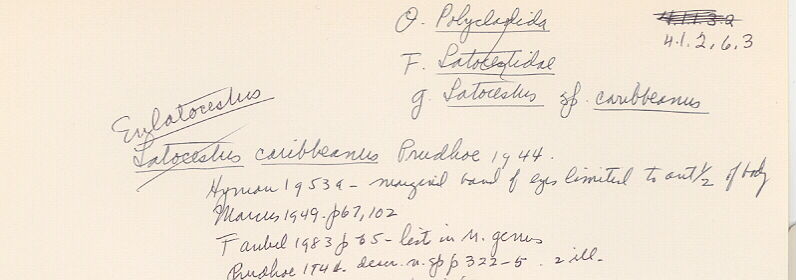 O. Polycladida
4.1.1.3.2
4.1.2.6.3
F. Latocestidae
g. Latocestus sp. caribbeanus
Eulatocestus
Latocestus caribbeanus Prudhoe 1944.
Hyman 1953a - marginal band of eyes limited to ant 1/2 of body
Marcus 1949. p67, 102
Faubel 1983 p 65 - list in n. genus
Prudhoe 1944. descr. n. sp p 322-5. 2 ill.